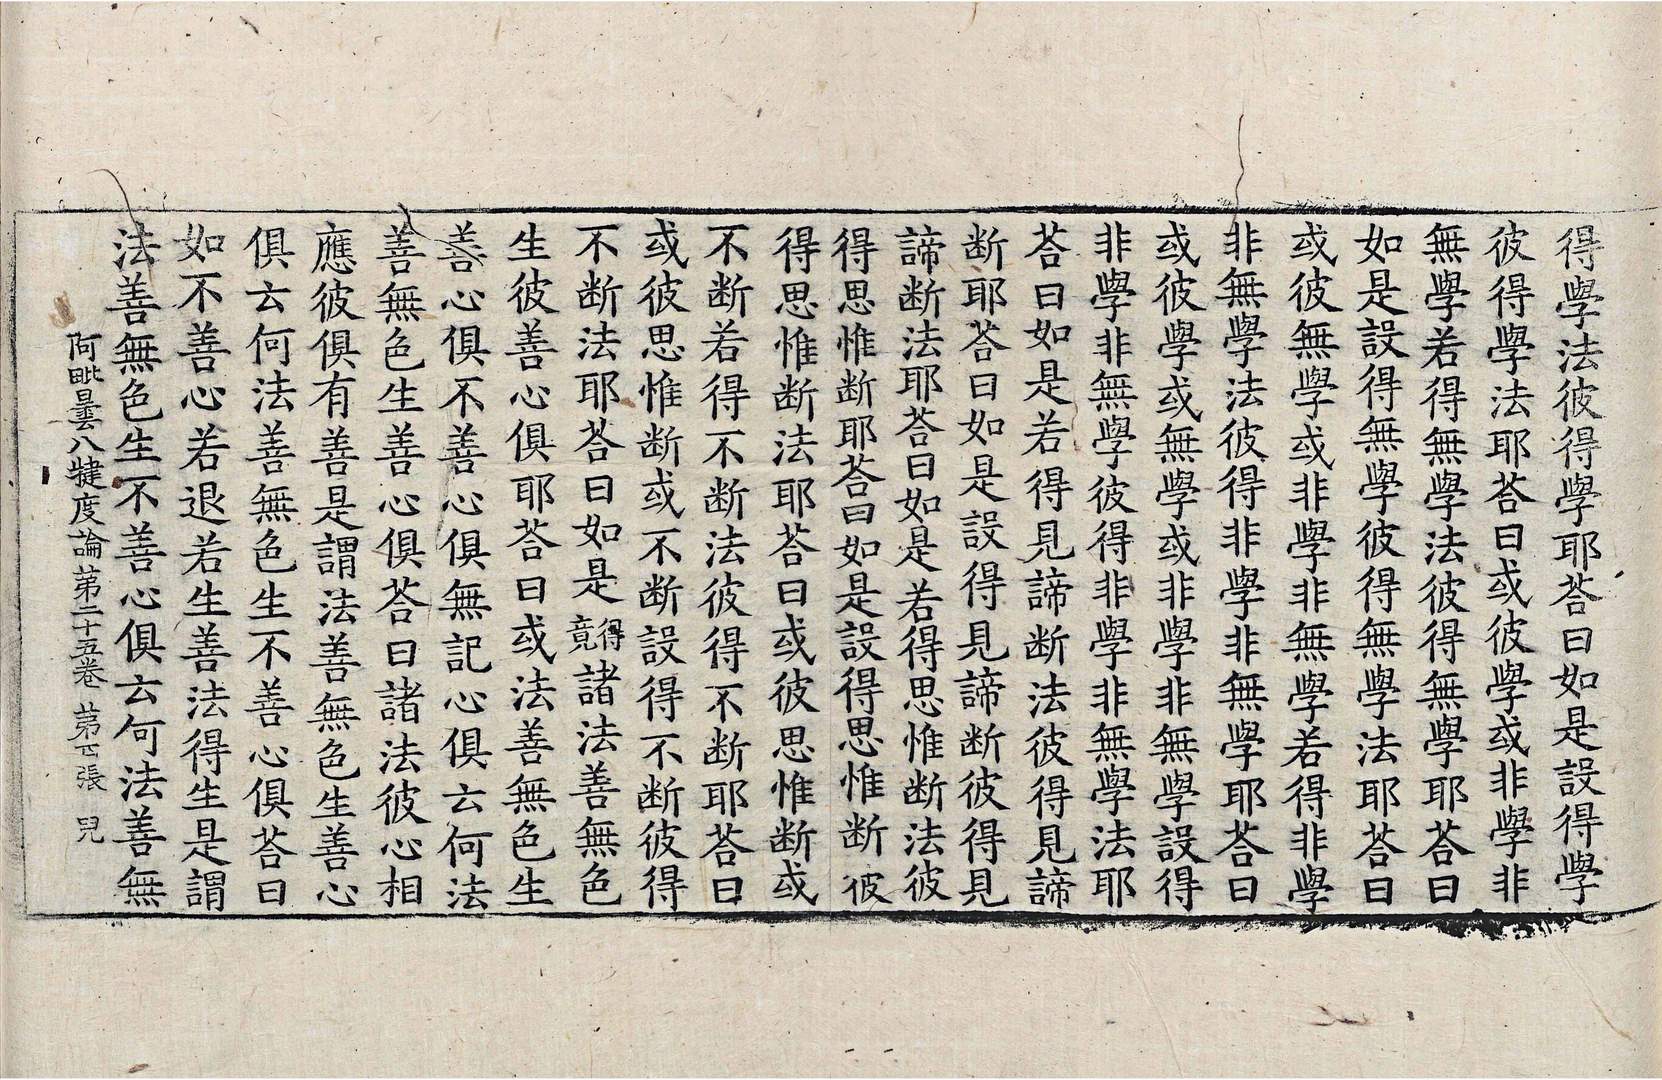 得學法彼得學耶荅曰如是設得學
彼得學法耶荅曰或彼學或非學非
無學若得無學法彼得無學耶荅曰
如是設得無學彼得無學法耶荅曰
或彼無學或非學非無學若得非學
非無學法彼得非學非無學耶荅曰
或彼學或無學或非學非無學設得
非學非無學彼得非學非無學法耶
荅曰如是若得見諦断法彼得見諦
断耶荅曰如是設得見諦断彼得見
諦断法耶荅曰如是若得思惟断法彼
得思惟断耶荅曰如是設得思惟断彼
得思惟断法耶荅曰或彼思惟断或
不断若得不断法彼得不断耶荅曰
或彼思惟断或不断設得不断彼得
不断法耶荅曰如是得竟諸法善無色
生彼善心俱耶荅曰或法善無色生
善心俱不善心俱無記心俱云何法
善無色生善心俱荅曰諸法彼心相
應彼俱有善是謂法善無色生善心
俱云何法善無色生不善心俱荅曰
如不善心若退若生善法得生是謂
法善無色生不善心俱云何法善無
阿毗曇八犍度論第二十五卷 第 張 兒